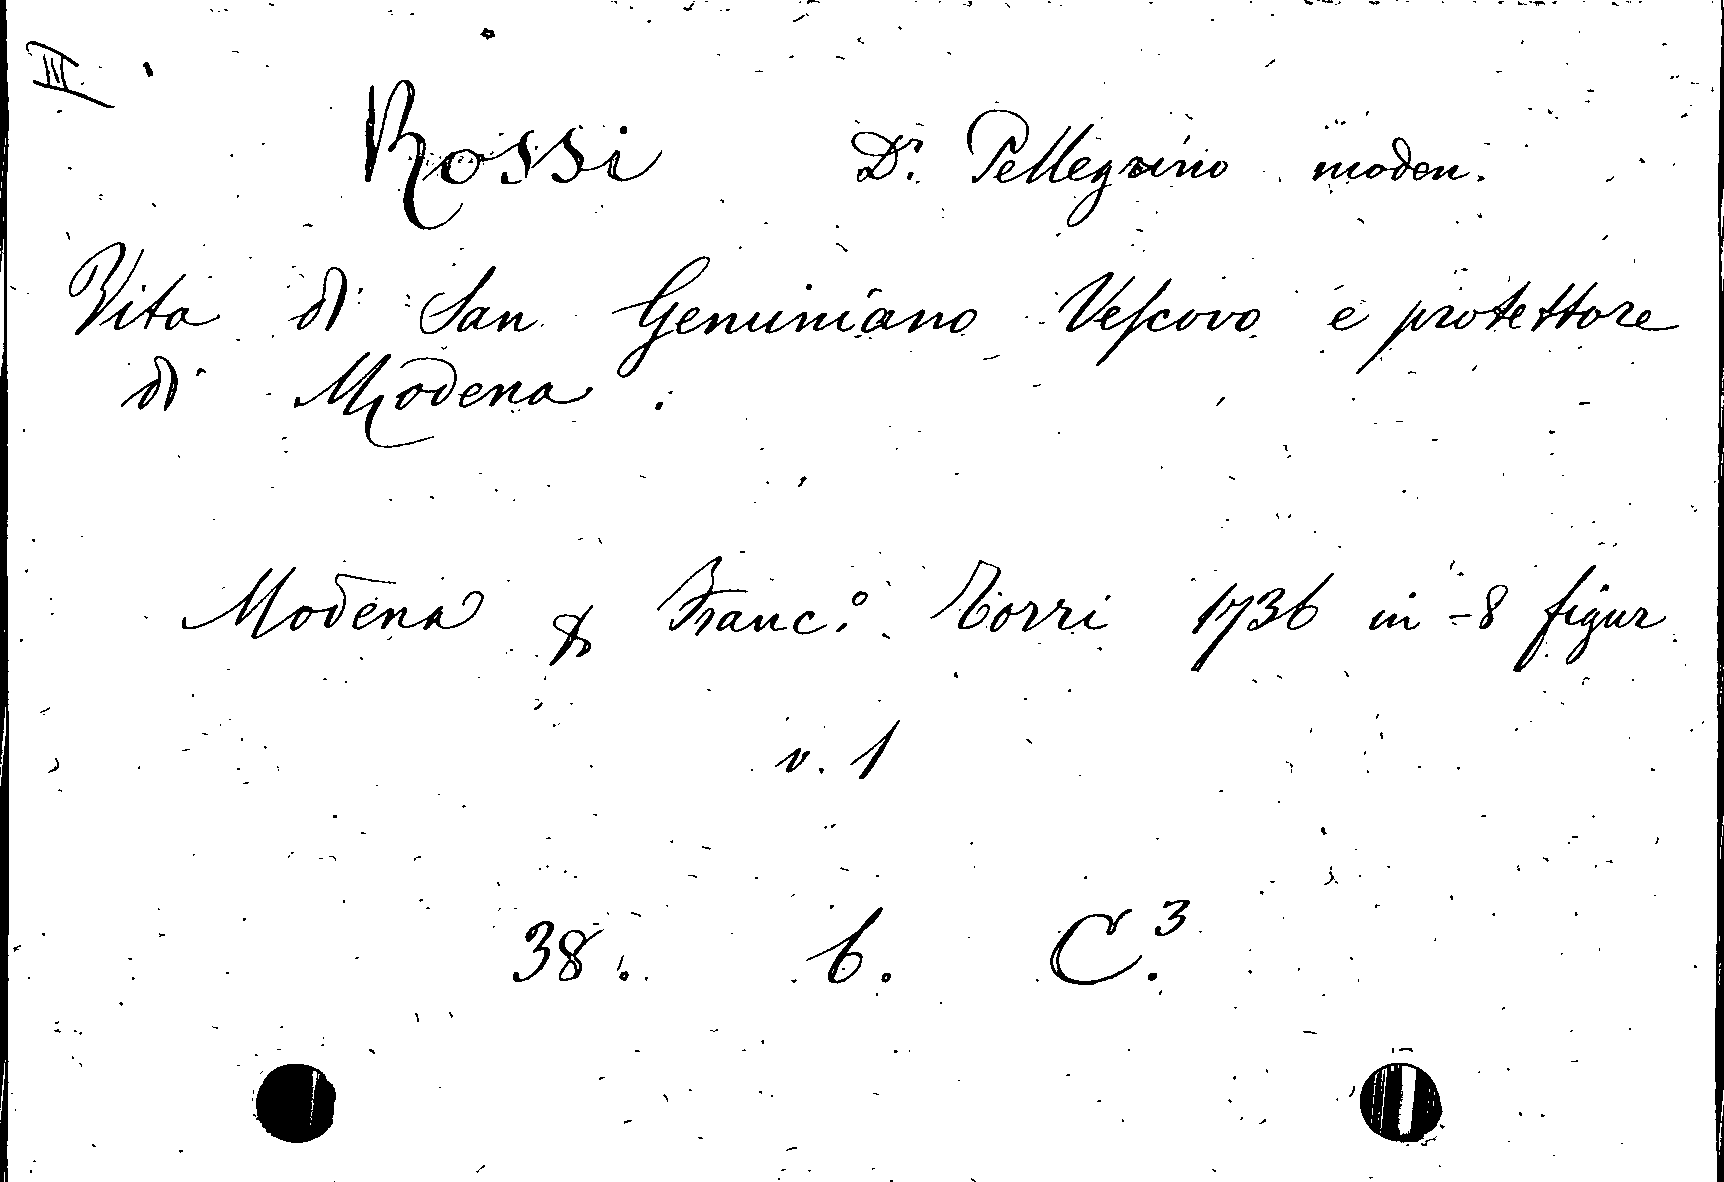 III
Rossi Dr. Pellegrino moden.
Vita di San Geminiano Veſcovo e protettore
di Modena.
Modena p Franc.o Torri 1736 in -8 figur
v. 1
38. b. C.3